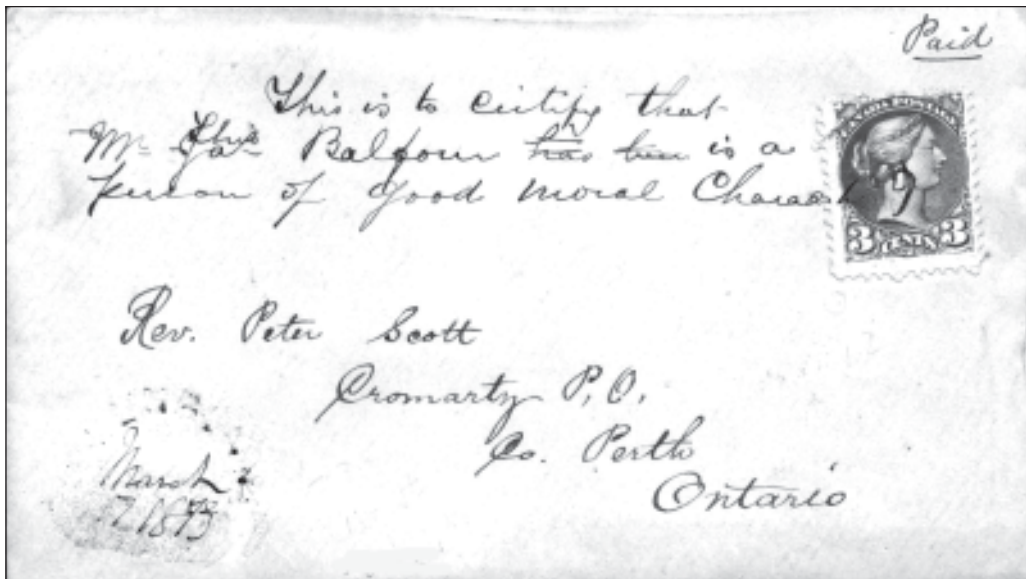 Paid
This is to certify that
Mr Balfour has been is a
person of good moral Charact
CANADA POSTAGE
3 CENTS 3
Rev. Peter Scott
Cromarty P.O.
Co. Perth
Ontario
March
17 1873